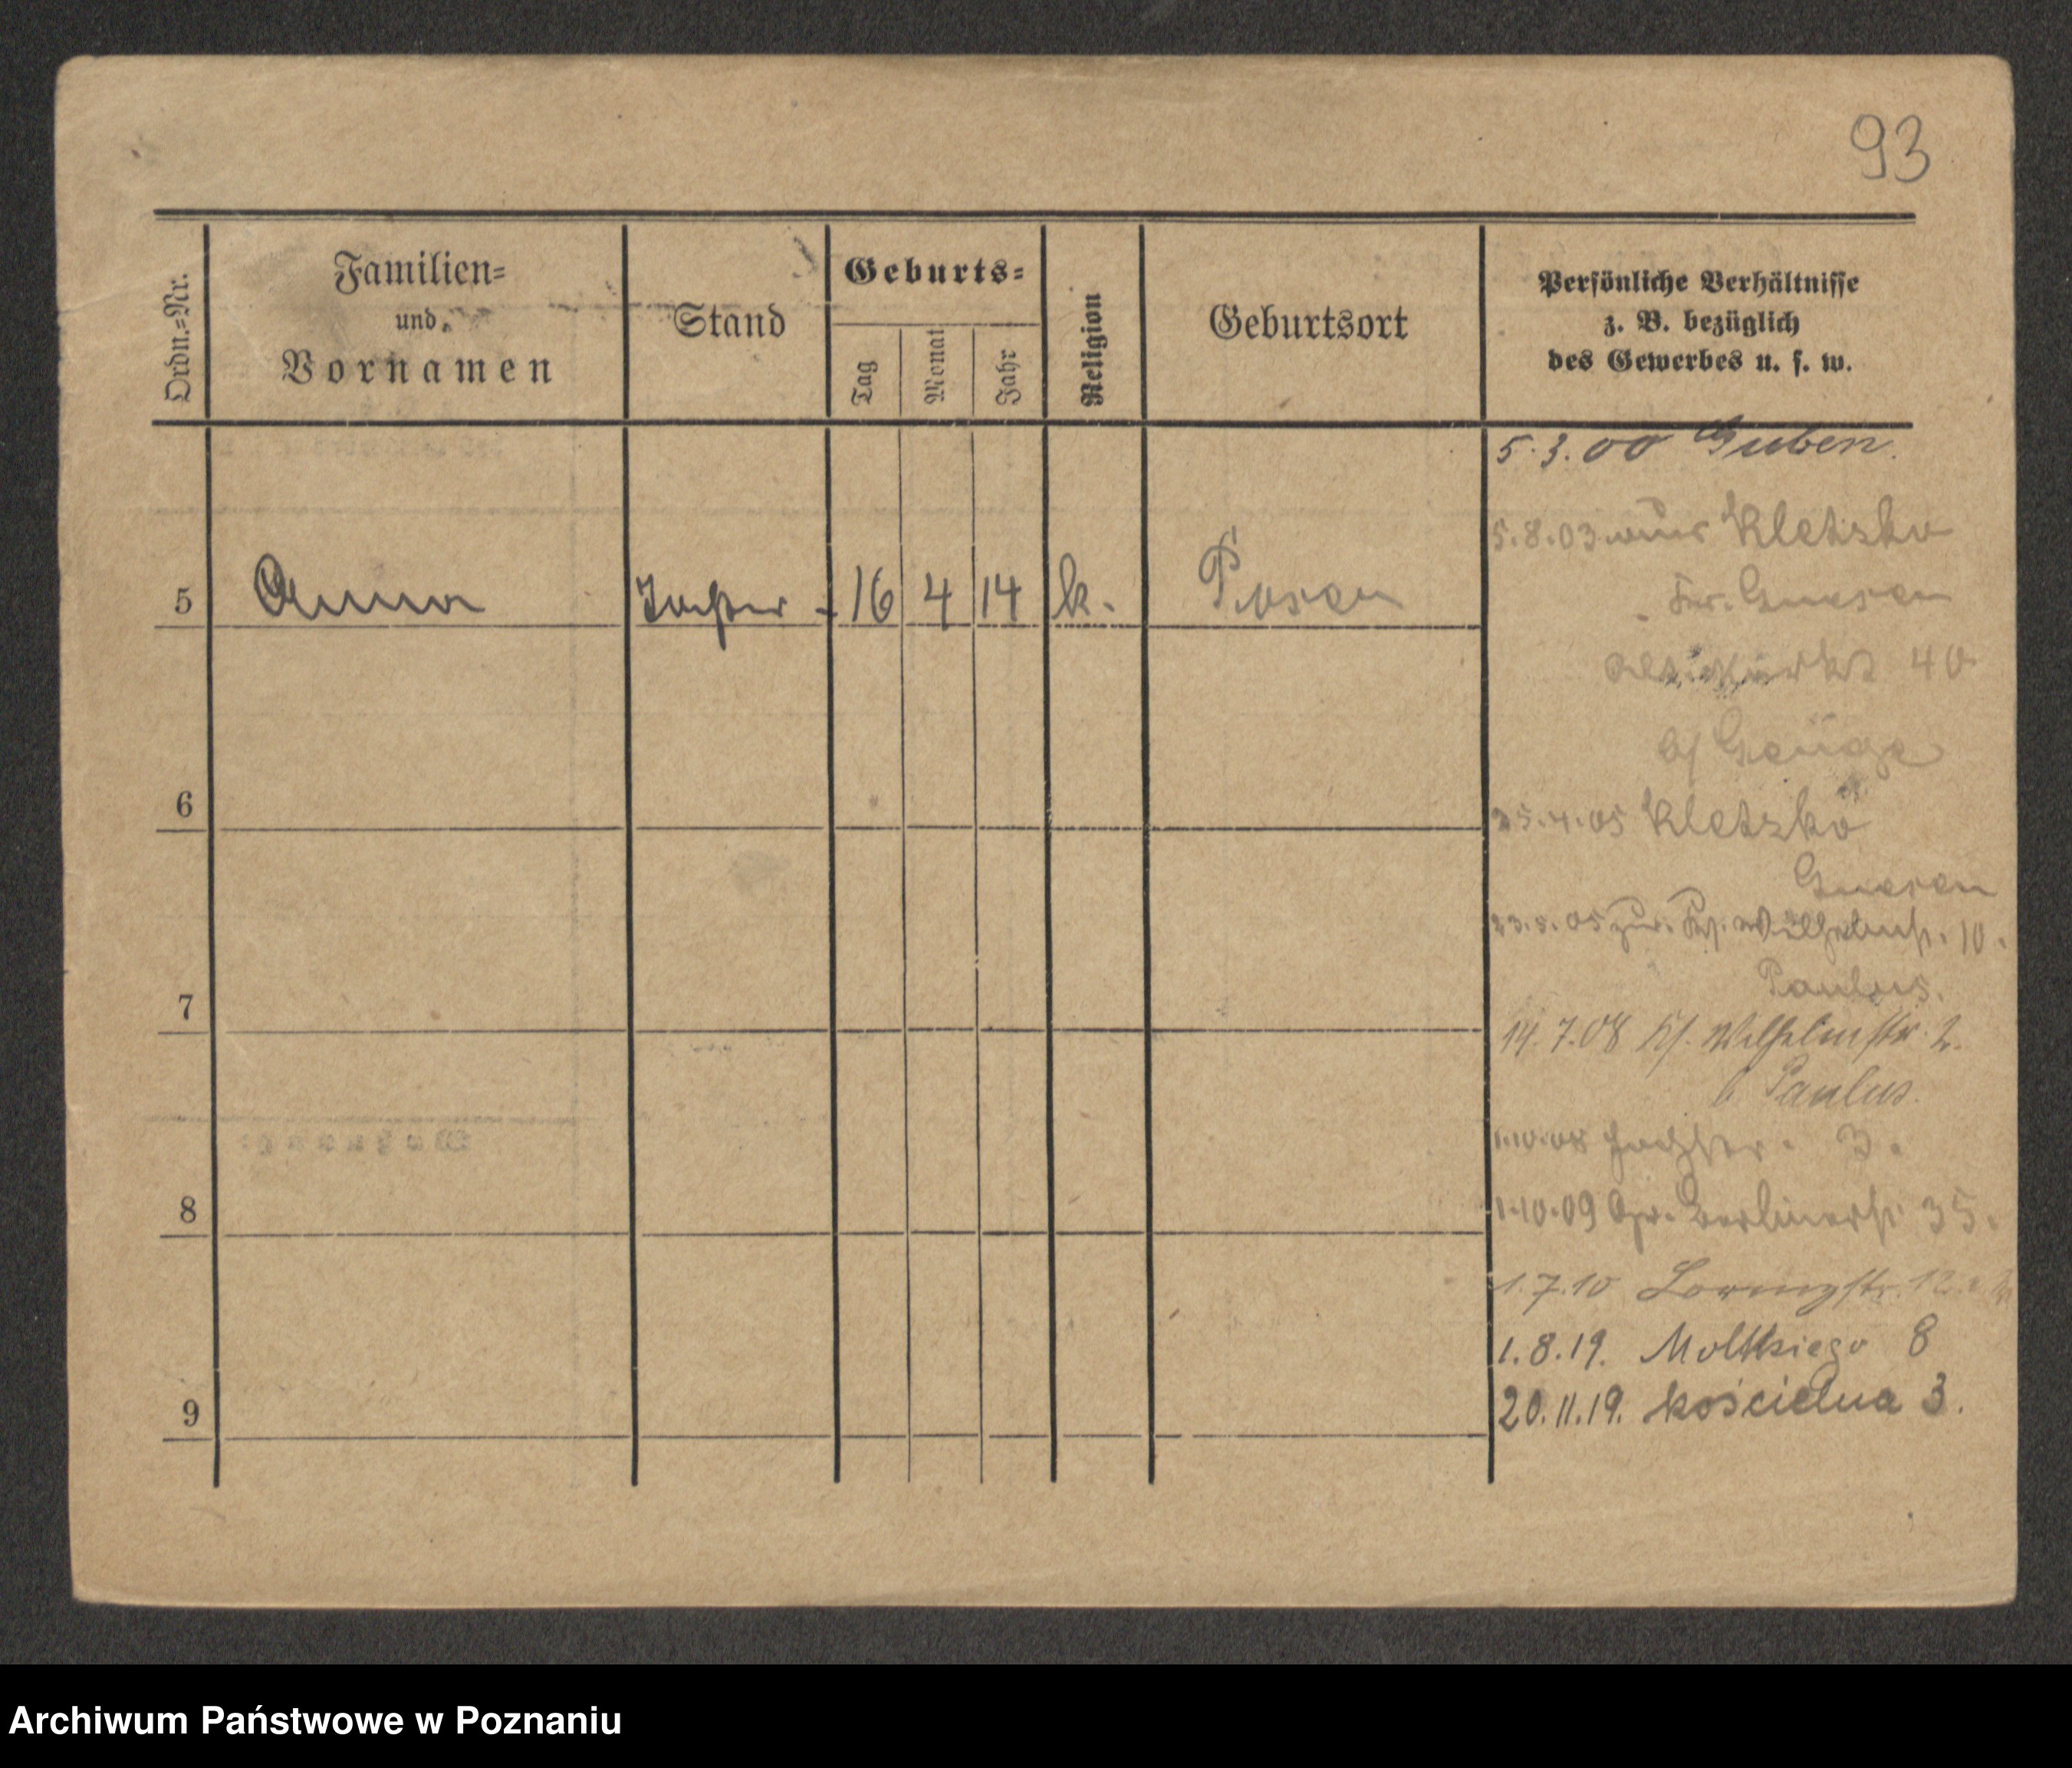 93
Ordn.=Nr.
Familien=
und
Vornamen
Stand
Geburts=
Tag
Monat
Jahr
Religion
Geburtsort
Persönliche Verhältnisse
z. B. bezüglich
des Gewerbes u. s. w.
5.3.00 Guben.
5.8.03 Kletzko
Kr. Gnesen
5 Anna 16 4 14 k. Posen
40
b/
6
25.4.05 Kletzko
Gnesen
23.5.05 zur. Wilhelmstr. 10.
Paulus.
7
14.7.08 Wilhelmstr. 2.
b Paulus.
1.10.08 3.
8
1.10.09 Berlinerstr 35.
1.7.10 12
1.8.19. Moltkiego 8
9
20.11.19. Kościelna 3.
Archiwum Państwowe w Poznaniu